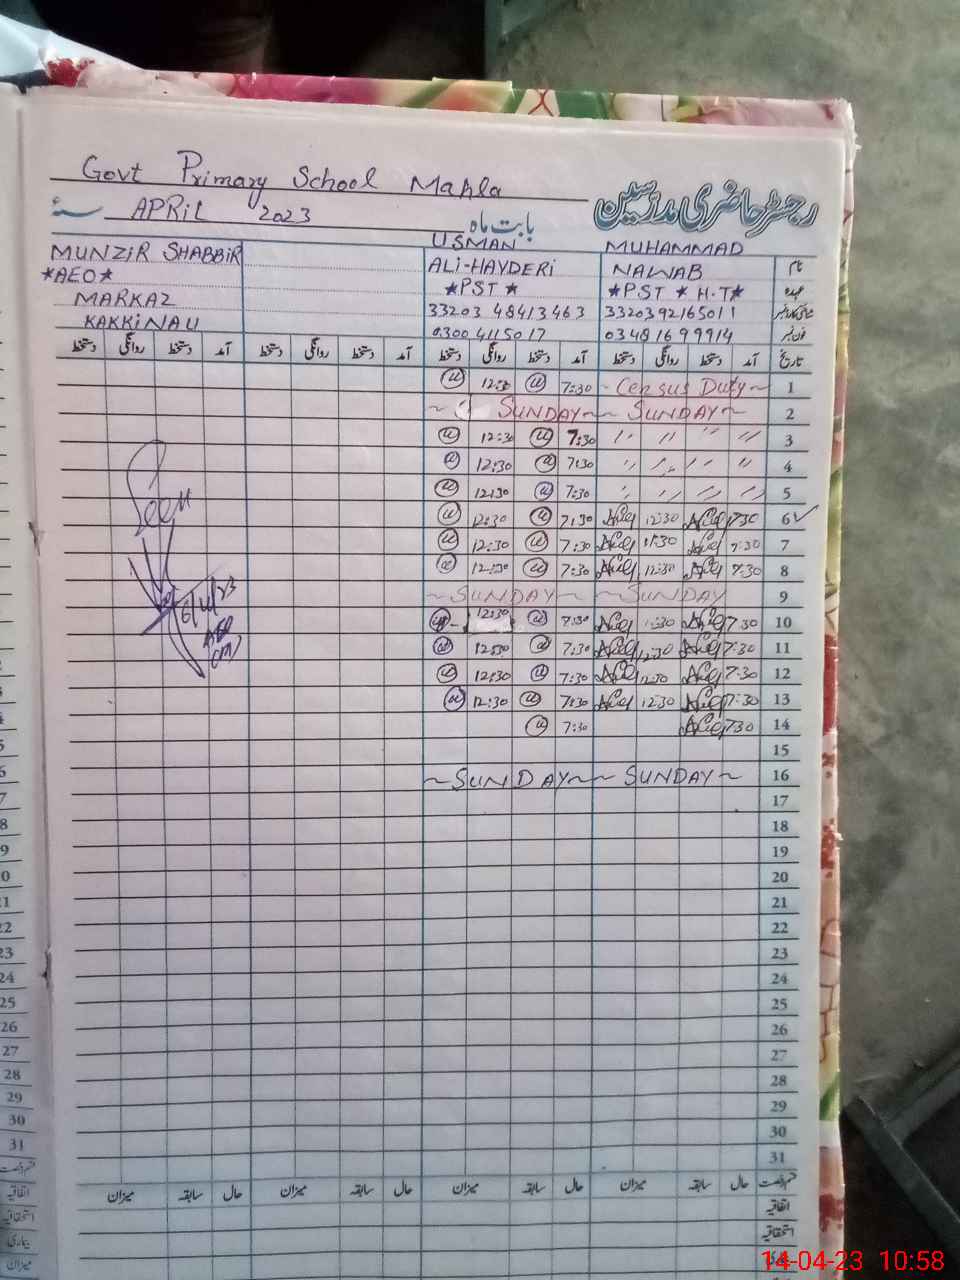 Govt Primary School Mahla
رجسٹر حاضری مدرسین
بابت ماہ APRIL 2023 سنہ
نام MUHAMMAD NAWAB USMAN ALI-HAYDERI MUNZIR SHABBIR
عہدہ *PST * H.T* *PST * *AEO*
3320392165011 33203 48413463 MARKAZ
فون نمبر 03481699914 0300 4115017 KAKKINAU
تاریخ آمد دستخط روانگی دستخط آمد دستخط روانگی دستخط آمد دستخط روانگی دستخط آمد دستخط روانگی دستخط
1 ~ Census Duty ~ 7:30 12:30
2 ~ SUNDAY ~ ~ SUNDAY ~
3 〃 〃 〃 〃 7:30 12:30
4 〃 〃 〃 〃 7:30 12:30
5 〃 〃 〃 〃 7:30 12:30
6 ✓ 7:30 12:30 7:30 12:30
7 7:30 7:30 12:30
8 7:30 12:30 7:30 12:30
9 ~ SUNDAY ~ SUNDAY
10 7:30 12:30 7:30 12:30
11 7:30 12:30 7:30 12:30
12 7:30 12:30 7:30 12:30
13 7:30 12:30 7:30 12:30
14 7:30 7:30
15
16 ~ SUNDAY ~ ~ SUNDAY ~
17
18
19
20
21
22
23
24
25
26
27
28
29
30
31
Seen
6/4/23
AEO
حال سابقہ میزان حال سابقہ میزان حال سابقہ میزان حال سابقہ میزان
اتفاقیہ
استحقاقیہ
22
23
24
25
26
27
28
29
30
31
اتفاقیہ
استحقاقیہ
بیماری
میزان
14-04-23 10:58